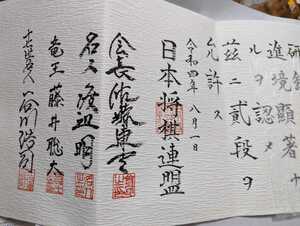 進境顯著ナ
ルヲ認メ
茲ニ貳段ヲ
允許ス
令和四年八月一日
日本将棋連盟
会長 佐藤康光
名人 渡辺明
竜王 藤井聡太
十七世名人 谷川浩司